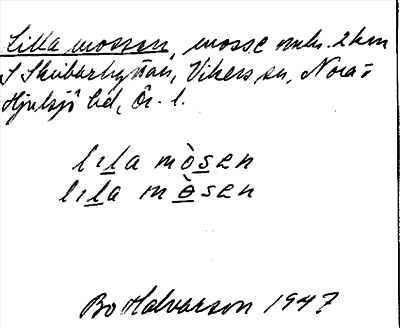 Lilla mossen, mosse omkr. 2 km
S Skrikarhyttan, Vikers sn, Nora o
Hjulsjö bd, Ör. l.
lıla mòsen
lıla mòsen
Bo Halvarson 1947